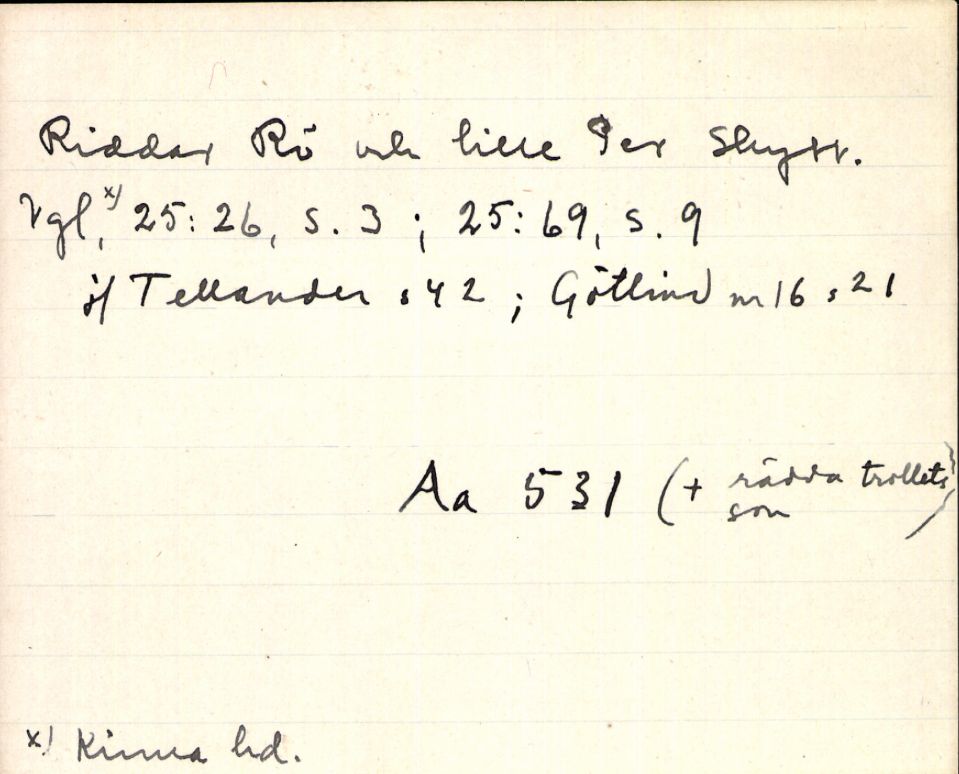 Riddar Rö och lille Per Skytt.
Vgl, x) 25:26, s. 3 ; 25:69, s. 9
jf Tellander s 42 ; Götlind nr 16 s 21
Aa 531 (+ rädda trollets
son)
x) Kinna hd.